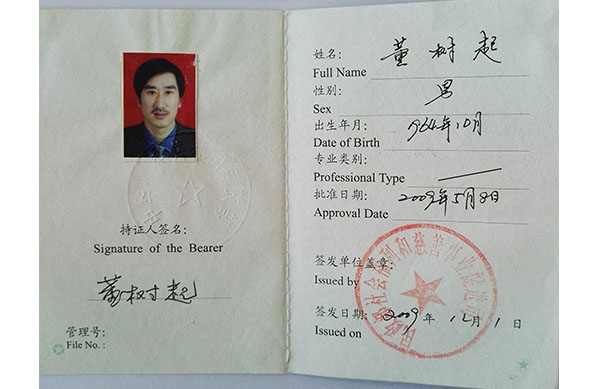 持证人签名:
Signature of the Bearer
董树起
管理号:
File No.:
姓名: 董树起
Full Name
性别: 男
Sex
出生年月: 1964年10月
Date of Birth
专业类别:
Professional Type
批准日期: 2009年5月8日
Approval Date
签发单位盖章:
Issued by
社会福利和慈善事业促进
签发日期: 2009年12月1日
Issued on